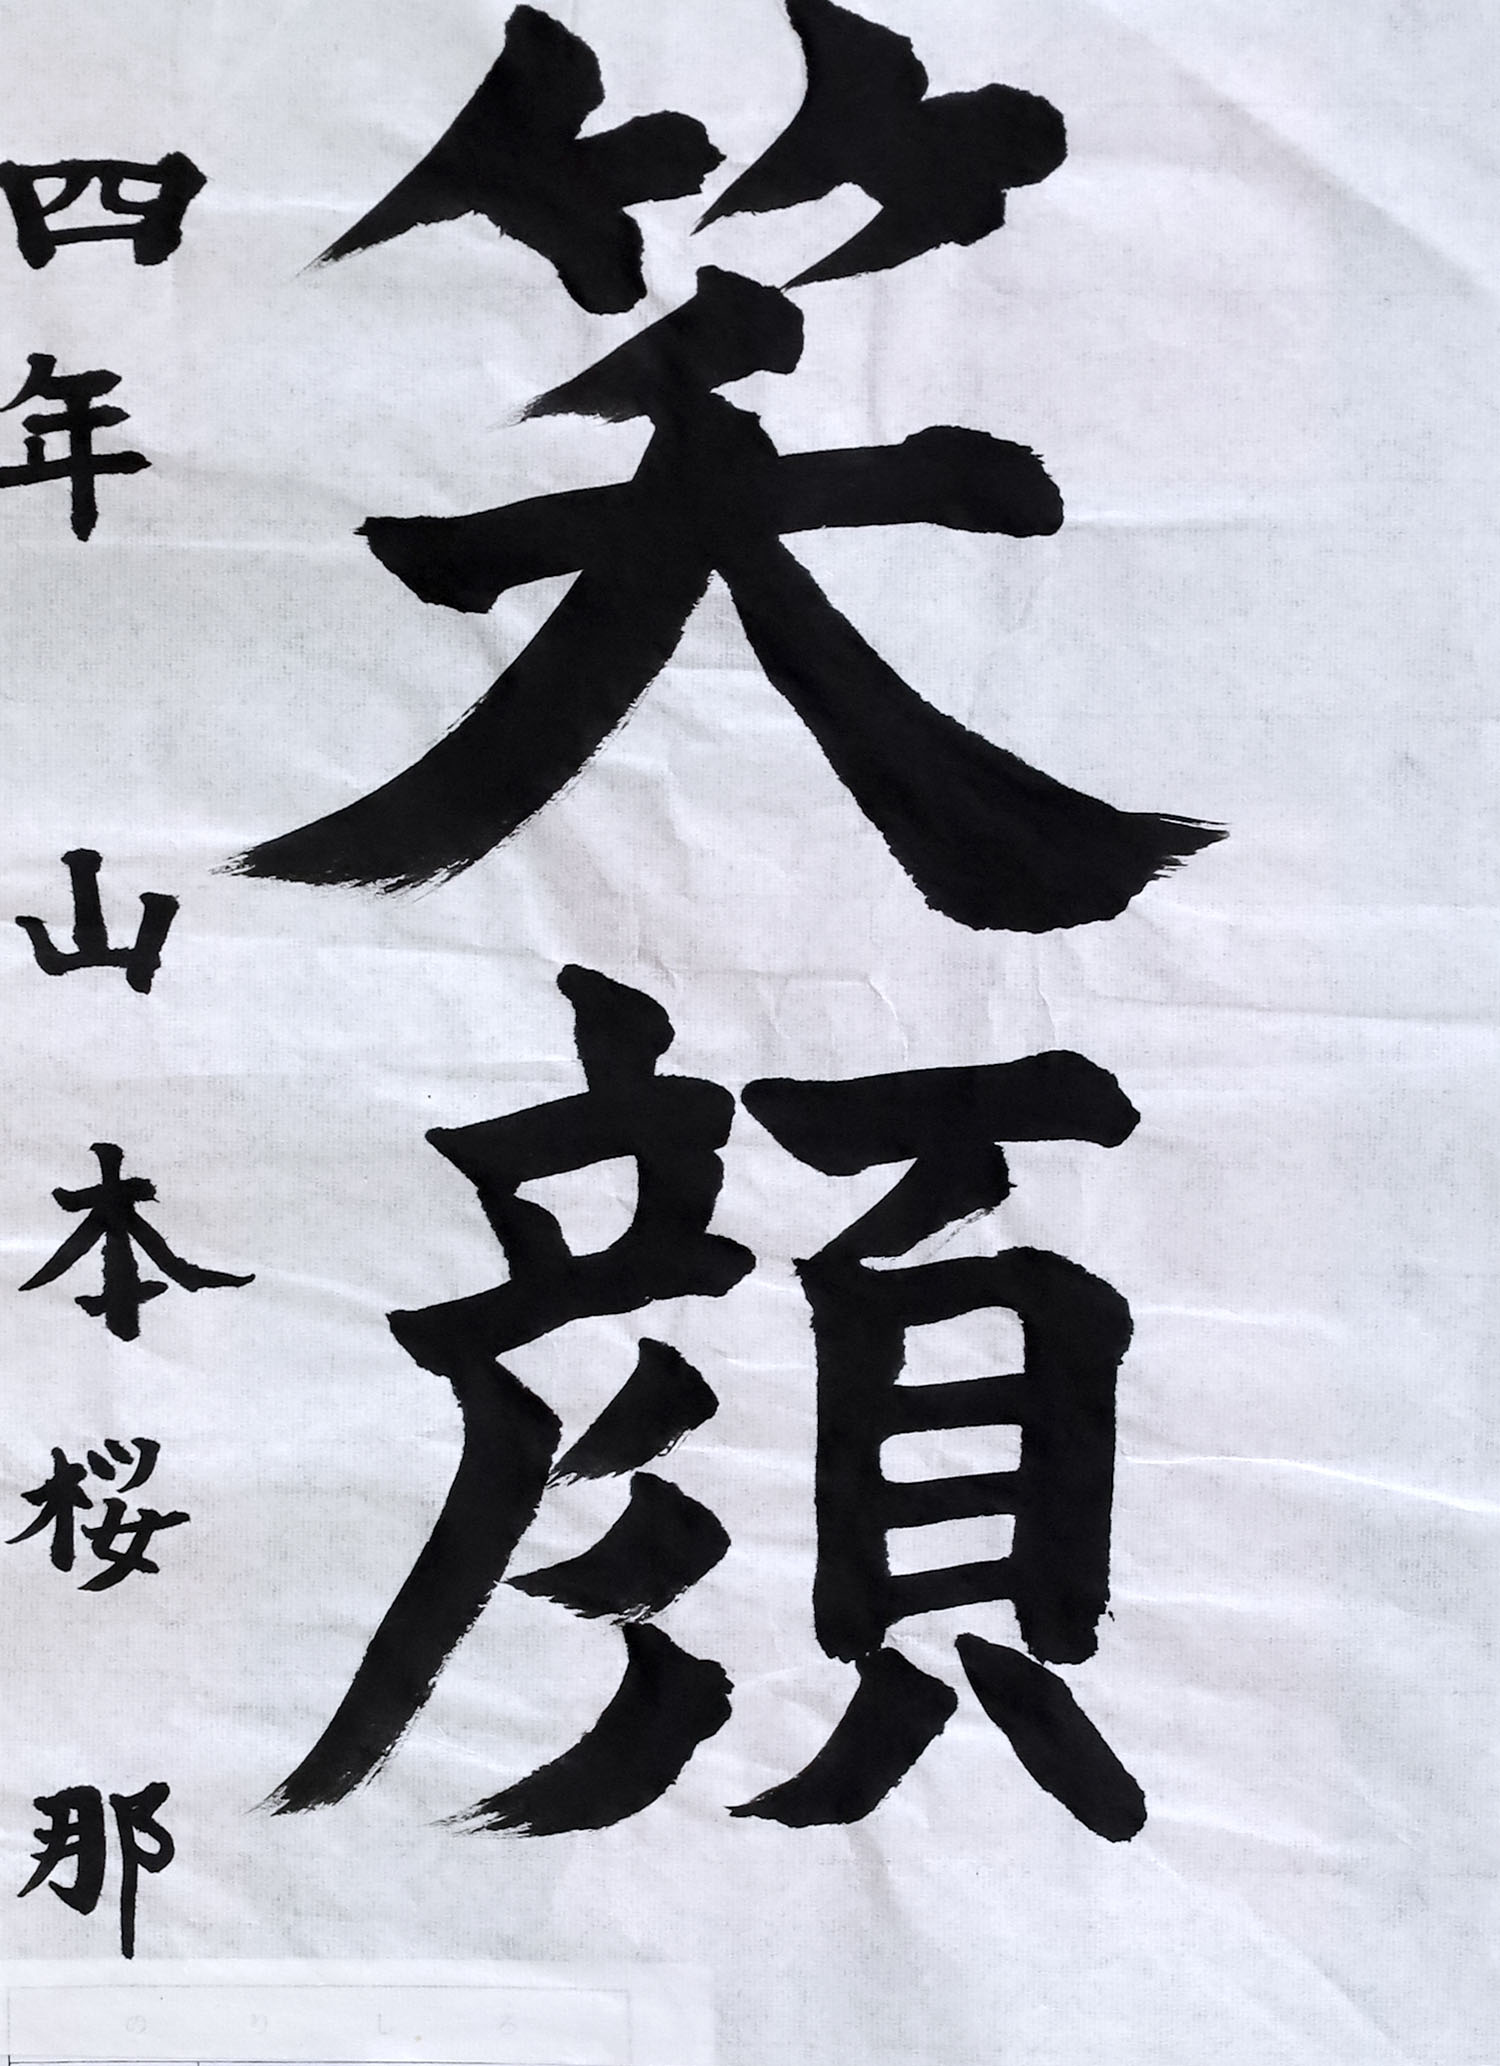 笑顔
四年 山本桜那
のりしろ